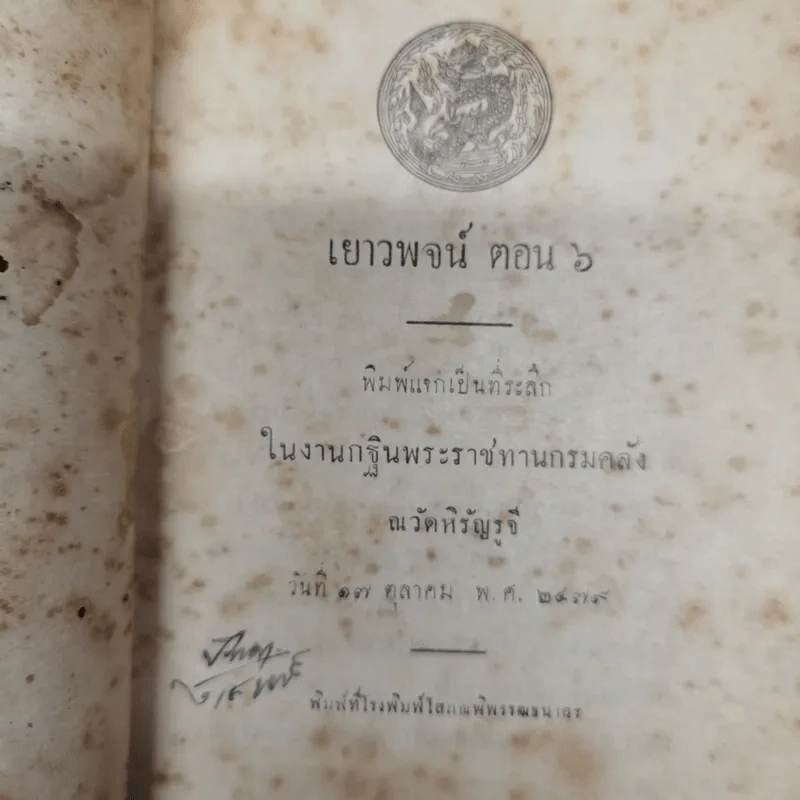 เยาวพจน์ ตอน ๖
พิมพ์แจกเป็นที่ระลึก
ในงานกฐินพระราชทานกรมคลัง
ณวัดหิรัญรูจี
วันที่ ๑๗ ตุลาคม พ.ศ. ๒๔๗๙
พิมพ์ที่โรงพิมพ์โสภณพิพรรฒธนากร